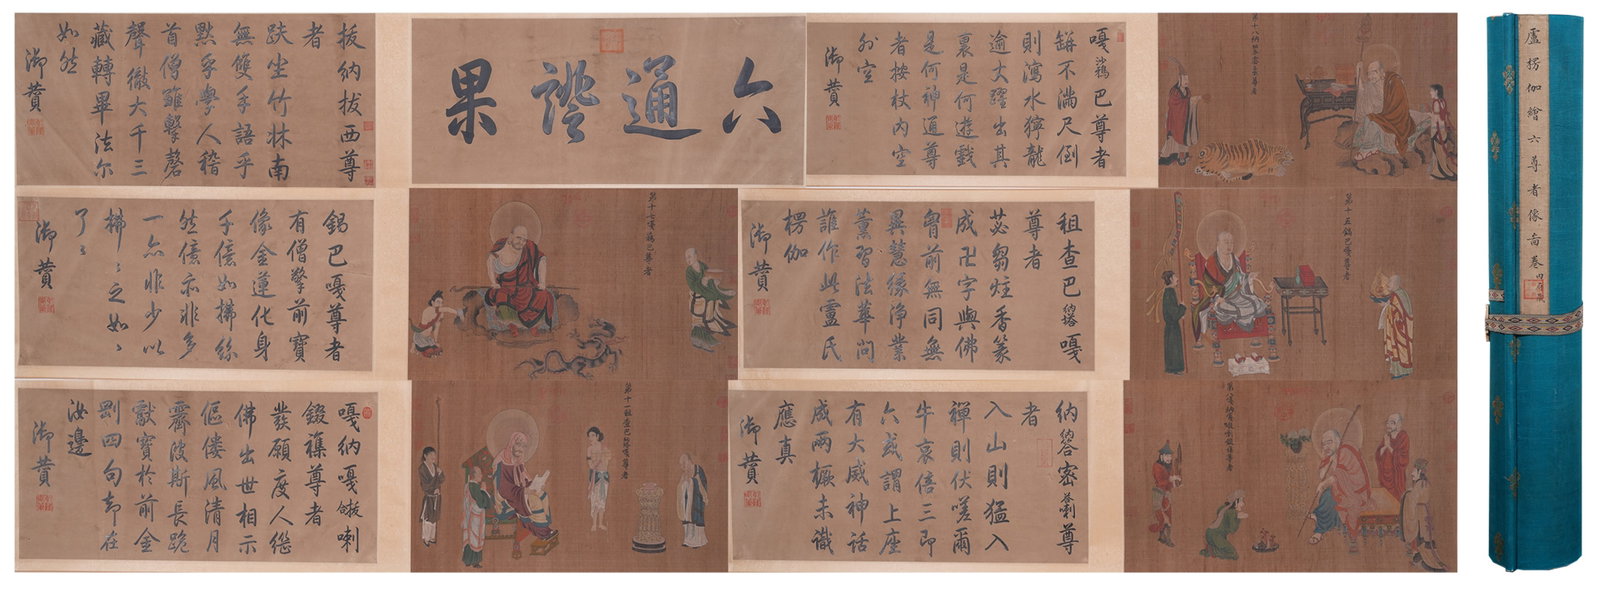 六通證果
嘎沙鴉巴尊者
缾不湍尺倒
則瀉水獰龍
逾丈躍出其
裏是何遊戲
是何神通尊
者按杖內空
外空
御贊
第十八納
拔納拔西尊
者
趺坐竹牀南
無雙手語乎
默乎學人稽
首僧雖擊磬
聲徹大千三
藏轉畢法尔
如然
御贊
錫巴嘎尊者
有僧擎前寶
像金蓮化身
千億如拂絲
然億亦非多
一亦非少以
拂拂之如如
了了
御贊
第十七嘎鴉巴尊者
租查巴納塔嘎
尊者
苾芻炷香篆
成卍字與佛
胷前無同無
異慧緣淨業
薰習法華問
誰作此盧氏
楞伽
御贊
第十五錫巴嘎尊者
嘎納嘎哈拔喇
鍰襍尊者
發願度人繼
佛出世相示
傴僂風清月
霽波斯長跪
獻寶於前金
剛四句却在
汝邊
御贊
第十一租查巴納塔嘎尊者
納納答密答喇尊
者
入山則猛入
禪則伏嗟爾
牛哀倍三即
六或謂上座
有大威神話
成兩橛未識
應真
御贊
盧楞伽繪六尊者像畵卷